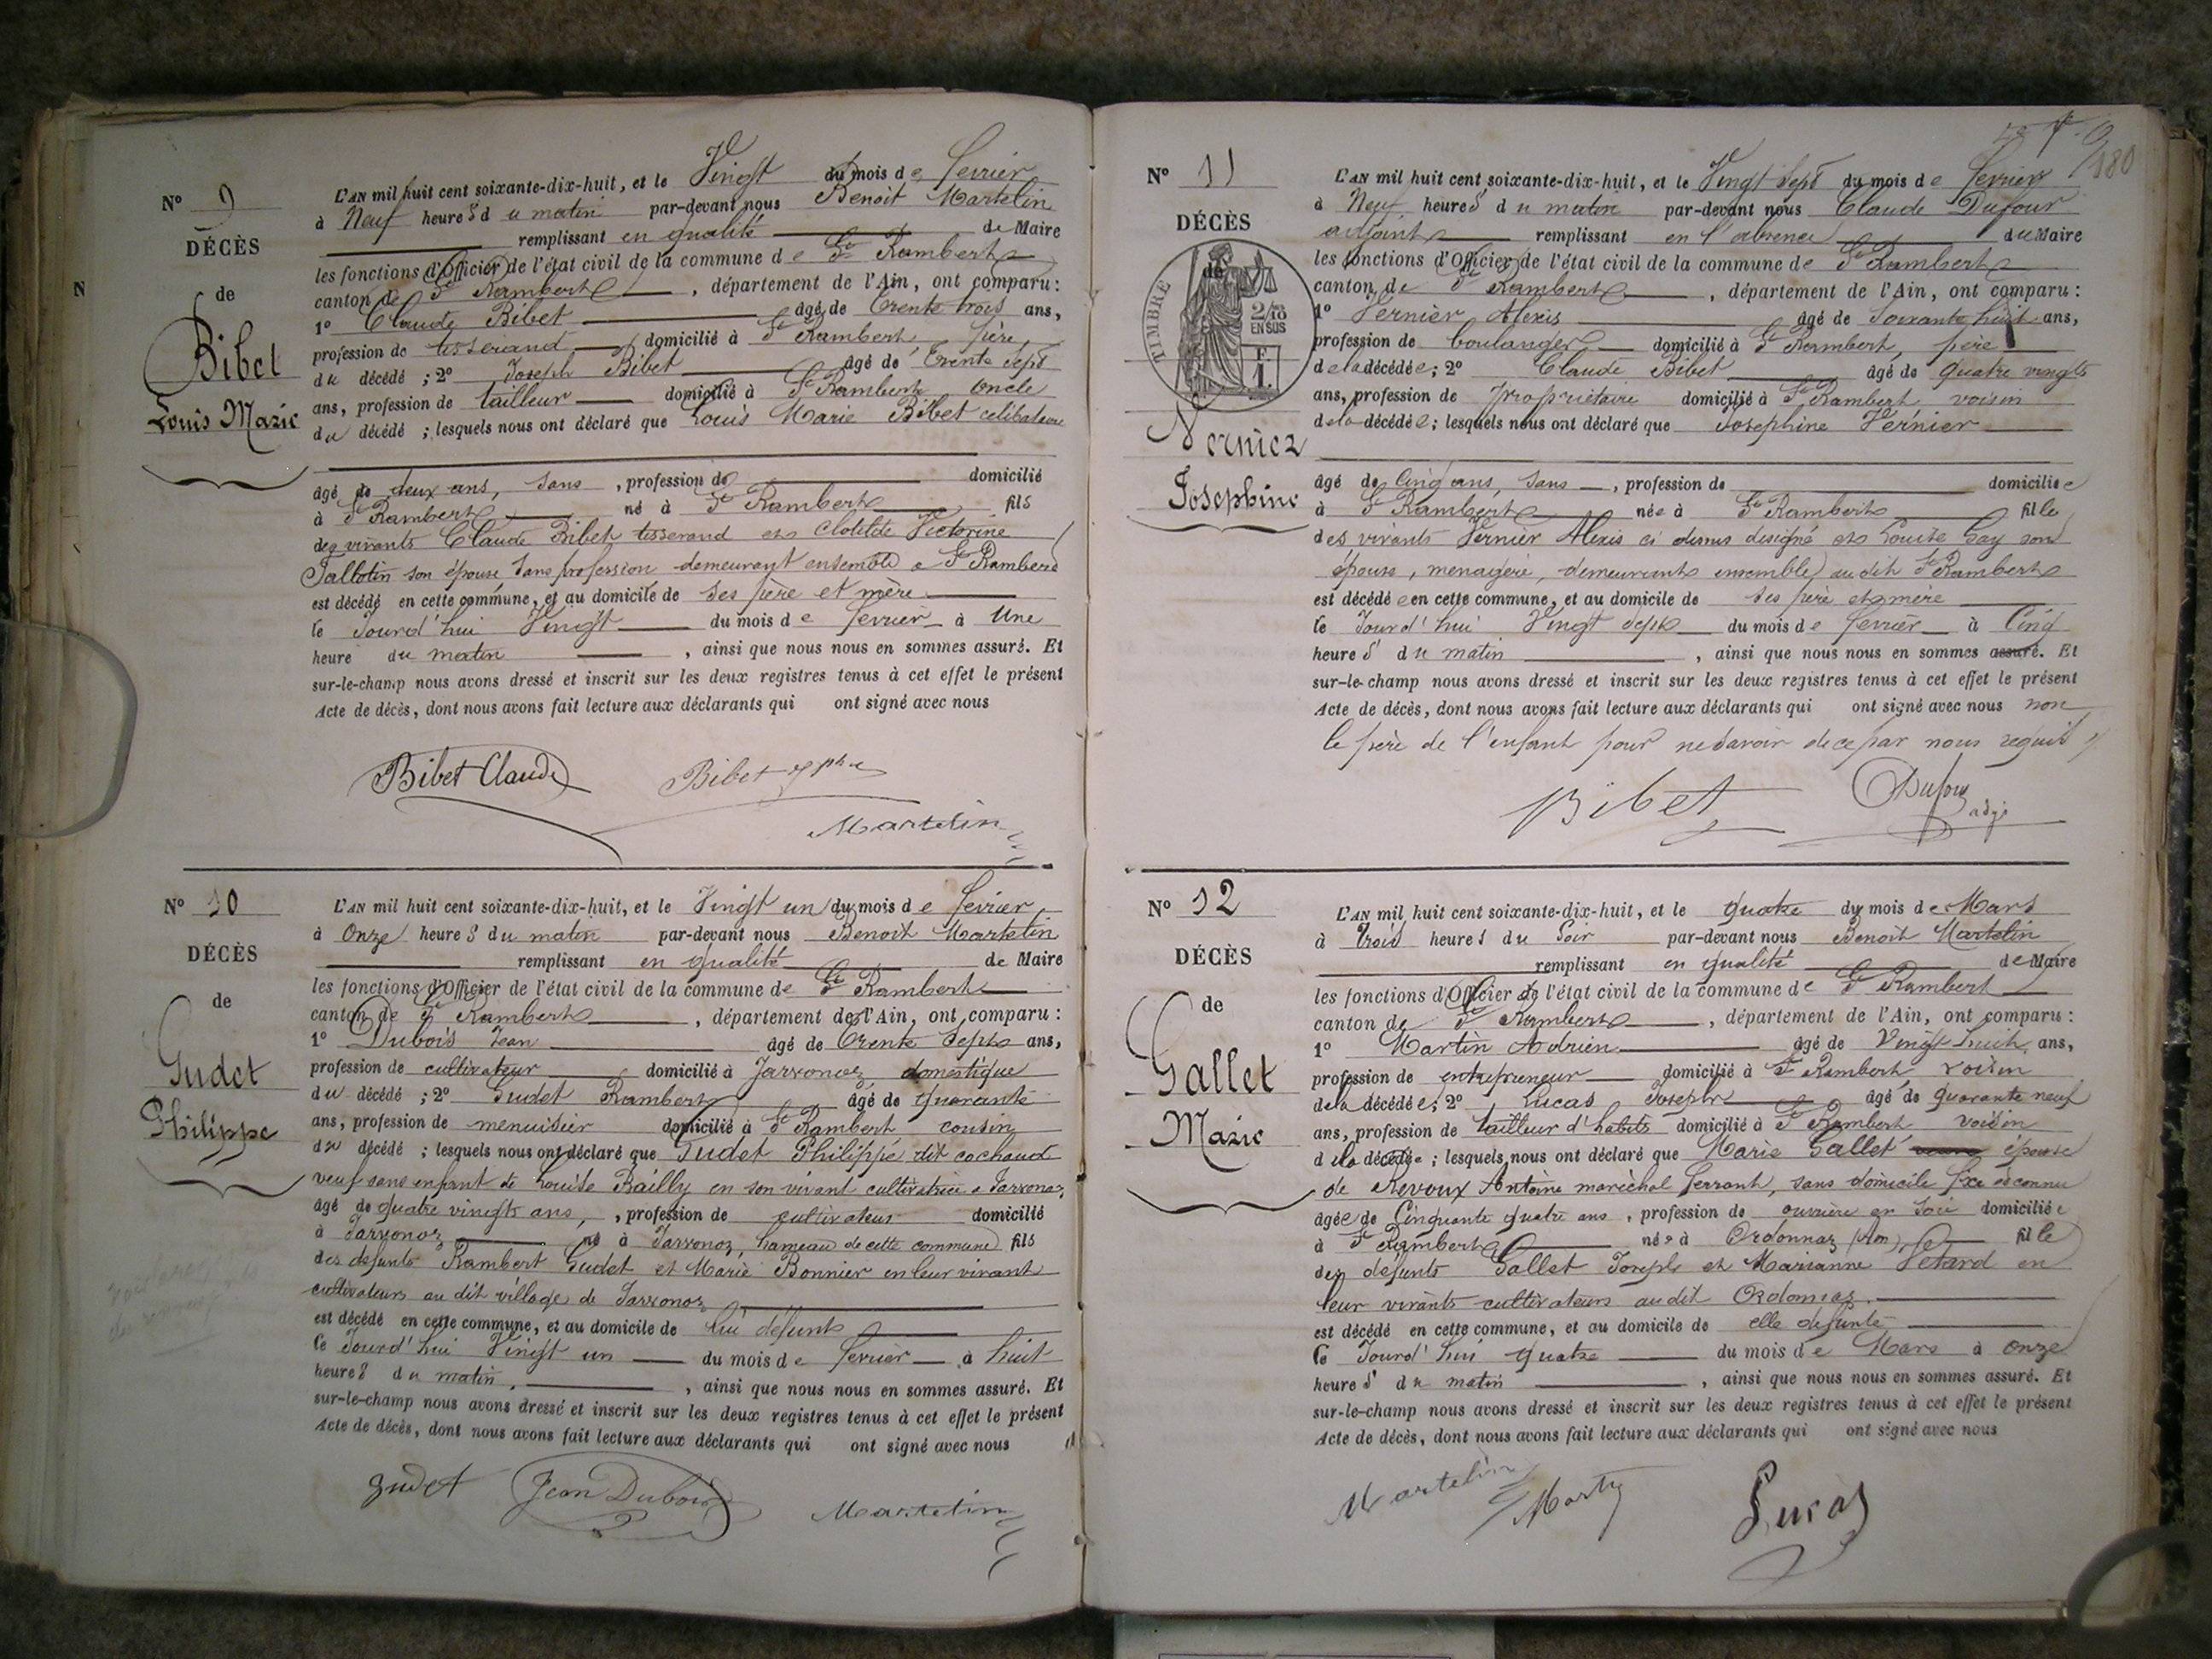 N
Nº 9
DÉCÈS
de
Bibet
Louis Marie
L'AN mil huit cent soixante-dix-huit, et le Vingt du mois de fevrier
à Neuf heures du matin par-devant nous Benoit Martelin
remplissant en qualité de Maire
les fonctions d'Officier de l'état civil de la commune de St Rambert
canton de St Rambert, département de l'Ain, ont comparu :
1º Claude Bibet âgé de Trente trois ans,
profession de tisserand domicilié à St Rambert père
du décédé ; 2º Joseph Bibet âgé de Trente sept
ans, profession de tailleur domicilié à St Rambert oncle
du décédé ; lesquels nous ont déclaré que Louis Marie Bibet celibataire
âgé de deux ans, sans, profession de domicilié
à St Rambert né à St Rambert fils
des vivants Claude Bibet tisserand et Clotilde Victorine
Tallotin son épouse sans profession demeurant ensemble a St Rambert
est décédé en cette commune, et au domicile de ses père et mère
le Jourd'hui Vingt du mois de fevrier à Une
heure du matin, ainsi que nous nous en sommes assuré. Et
sur-le-champ nous avons dressé et inscrit sur les deux registres tenus à cet effet le présent
Acte de décès, dont nous avons fait lecture aux déclarants qui ont signé avec nous
Bibet Claude Bibet jph
Martelin
Nº 10
DÉCÈS
de
Gudet
Philippe
L'AN mil huit cent soixante-dix-huit, et le Vingt un du mois de fevrier
à Onze heures du matin par-devant nous Benoit Martelin
remplissant en qualité de Maire
les fonctions d'Officier de l'état civil de la commune de St Rambert
canton de St Rambert, département de l'Ain, ont comparu :
1º Dubois Jean âgé de Trente sept ans,
profession de cultivateur domicilié à Javronoz domestique
du décédé ; 2º Gudet Rambert âgé de quarante
ans, profession de menuisier domicilié à St Rambert cousin
du décédé ; lesquels nous ont déclaré que Gudet Philippe dit cochaud
veuf sans enfant de Louise Bailly en son vivant cultivatrice a Javronoz
âgé de quatre vingts ans, profession de cultivateur domicilié
à Javronoz né à Javronoz, hameau de cette commune fils
des defunts Rambert Gudet et Marie Bonnier en leur vivant
cultivateurs au dit village de Javronoz
est décédé en cette commune, et au domicile de lui défunt
le Jourd'hui Vingt un du mois de fevrier à huit
heures du matin, ainsi que nous nous en sommes assuré. Et
sur-le-champ nous avons dressé et inscrit sur les deux registres tenus à cet effet le présent
Acte de décès, dont nous avons fait lecture aux déclarants qui ont signé avec nous
gudet Jean Dubois Martelin
180
Nº 11
DÉCÈS
de
TIMBRE
2/10
EN SUS
Vernier
Josephine
L'AN mil huit cent soixante-dix-huit, et le Vingt sept du mois de fevrier
à Neuf heures du matin par-devant nous Claude Dufour
adjoint remplissant en l'absence du Maire
les fonctions d'Officier de l'état civil de la commune de St Rambert
canton de St Rambert, département de l'Ain, ont comparu :
1º Vernier Alexis âgé de Soixante huit ans,
profession de boulanger domicilié à St Rambert, père
de la décédée ; 2º Claude Bibet âgé de quatre vingts
ans, profession de propriétaire domicilié à St Rambert voisin
de la décédée ; lesquels nous ont déclaré que Josephine Vernier
âgé de Cinq ans, sans, profession de domiciliée
à St Rambert née à St Rambert fille
des vivants Vernier Alexis ci dessus designé et Louise Gay son
épouse, menagère, demeurants ensemble au dit St Rambert
est décédée en cette commune, et au domicile de ses père et mère
le Jourd'hui Vingt sept du mois de fevrier à Cinq
heures du matin, ainsi que nous nous en sommes assuré. Et
sur-le-champ nous avons dressé et inscrit sur les deux registres tenus à cet effet le présent
Acte de décès, dont nous avons fait lecture aux déclarants qui ont signé avec nous non
le père de l'enfant pour ne savoir de ce par nous requit
Bibet Dufour adjt
Nº 12
DÉCÈS
de
Gallet
Marie
L'AN mil huit cent soixante-dix-huit, et le quatre du mois de Mars
à trois heures du Soir par-devant nous Benoit Martelin
remplissant en qualité de Maire
les fonctions d'Officier de l'état civil de la commune de St Rambert
canton de St Rambert, département de l'Ain, ont comparu :
1º Martin Adrien âgé de Vingt huit ans,
profession de entrepreneur domicilié à St Rambert, voisin
de la décédée ; 2º Lucas Joseph âgé de quarante neuf
ans, profession de tailleur d'habits domicilié à St Rambert voisin
de la décédée ; lesquels nous ont déclaré que Marie Gallet épouse
de Revoux Antoine maréchal ferrant, sans domicile fixe
âgée de Cinquante quatre ans, profession de ouvrière en soie domiciliée
à St Rambert née à Ordonnaz (Ain) fille
des défunts Gallet Joseph et Marianne en
leur vivants cultivateurs audit Ordonnaz.
est décédé en cette commune, et au domicile de elle defunte
le Jourd'hui quatre du mois de Mars à onze
heures du matin, ainsi que nous nous en sommes assuré. Et
sur-le-champ nous avons dressé et inscrit sur les deux registres tenus à cet effet le présent
Acte de décès, dont nous avons fait lecture aux déclarants qui ont signé avec nous
Martelin Martin Lucas